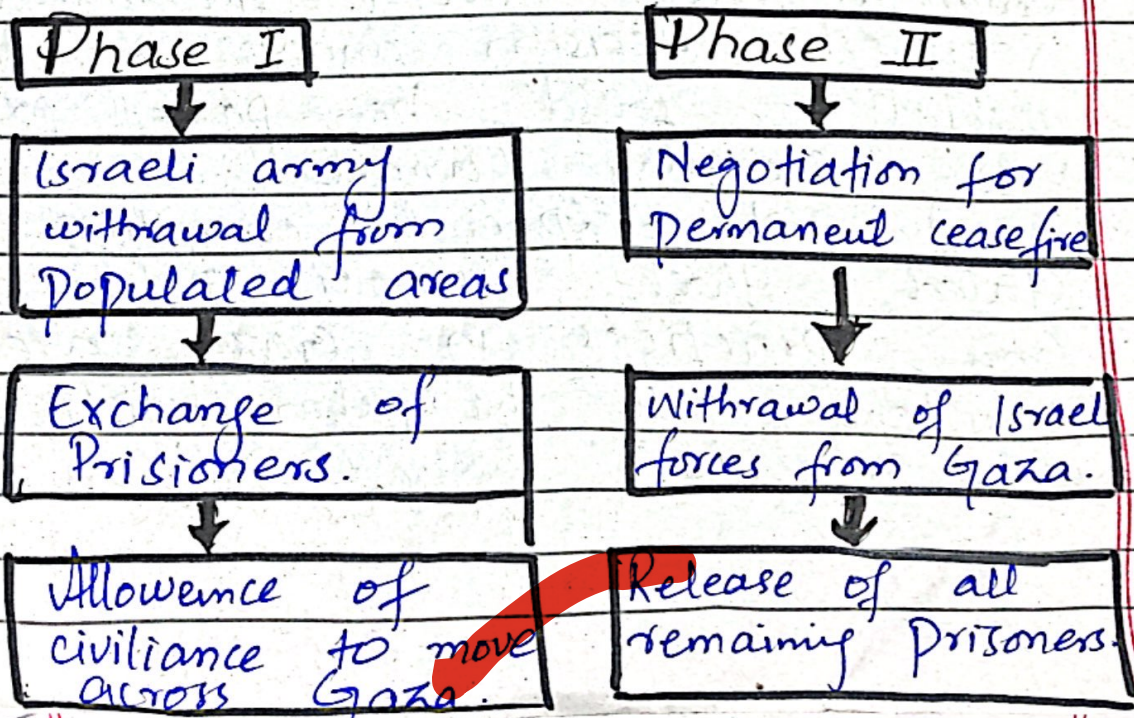 Phase I
Israeli army
withrawal from
populated areas
Exchange of
Prisioners.
Allowemce of
civiliance to move
across Gaza.
Phase II
Negotiation for
permanent ceasefire
Withrawal of Israel
forces from Gaza.
Release of all
remaining prisoners.